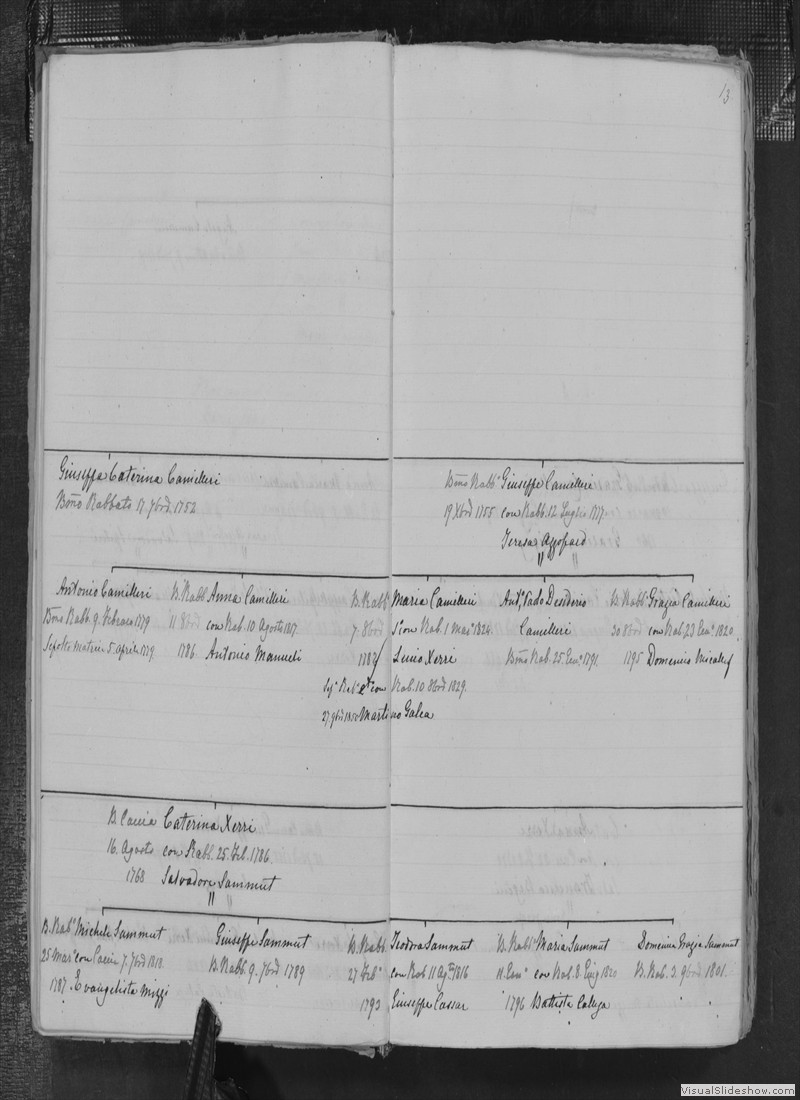 13
Giuseppa Caterina Camilleri
Bõno Rabbato 17. 7bre. 1752
Bõno Rabbº Giuseppe Camilleri
19 Xbre 1755 con Rabb. 12 Luglio 1777.
Teresa Azzopard
" "
Antonio Camilleri
Bõno Rabb. 9. Febraro 1779
Sepolto Matrice 5. Aprile 1779.
B. Rabb. Anna Camilleri
11 8bre con Rab. 10 Agosto 1817.
1786 Antonio Manueli
B. Rabbº Maria Camilleri
7. 8bre 1º con Rab. 1 Mar° 1824.
Xerri
2º con Rab. 10 8bre 1829.
27 9bre 1850 Martino Galea
Antº Tado Desiderio
Camilleri
Bõno Rab. 25. Genº 1791.
B. Rabbº Grazia Camilleri
30 8bre con Rab. 23 Genº 1820
1795 Domenico Micallef
B. Caccia Caterina Xerri
16. Agosto con Rabb. 25. Feb. 1786.
1768 Salvadore Sammut
"
B. Rabº Michele Sammut
25 Marº con Caccia 7. 7bre 1818.
1787. Evangelista Mizzi
Giuseppe Sammut
B. Rabb. 9. 7bre 1789
B. Rabb Teodora Sammut
27 Febº con Rab. 11 Agº 1816
1793 Giuseppe Cassar
B. Rabbº Maria Sammut
11. Genº con Rab. 8 Giug 1820
1796 Battista Calleja
Domenica Grazia Sammut
B. Rab. 3. 9bre 1801.
VisualSlideshow.com